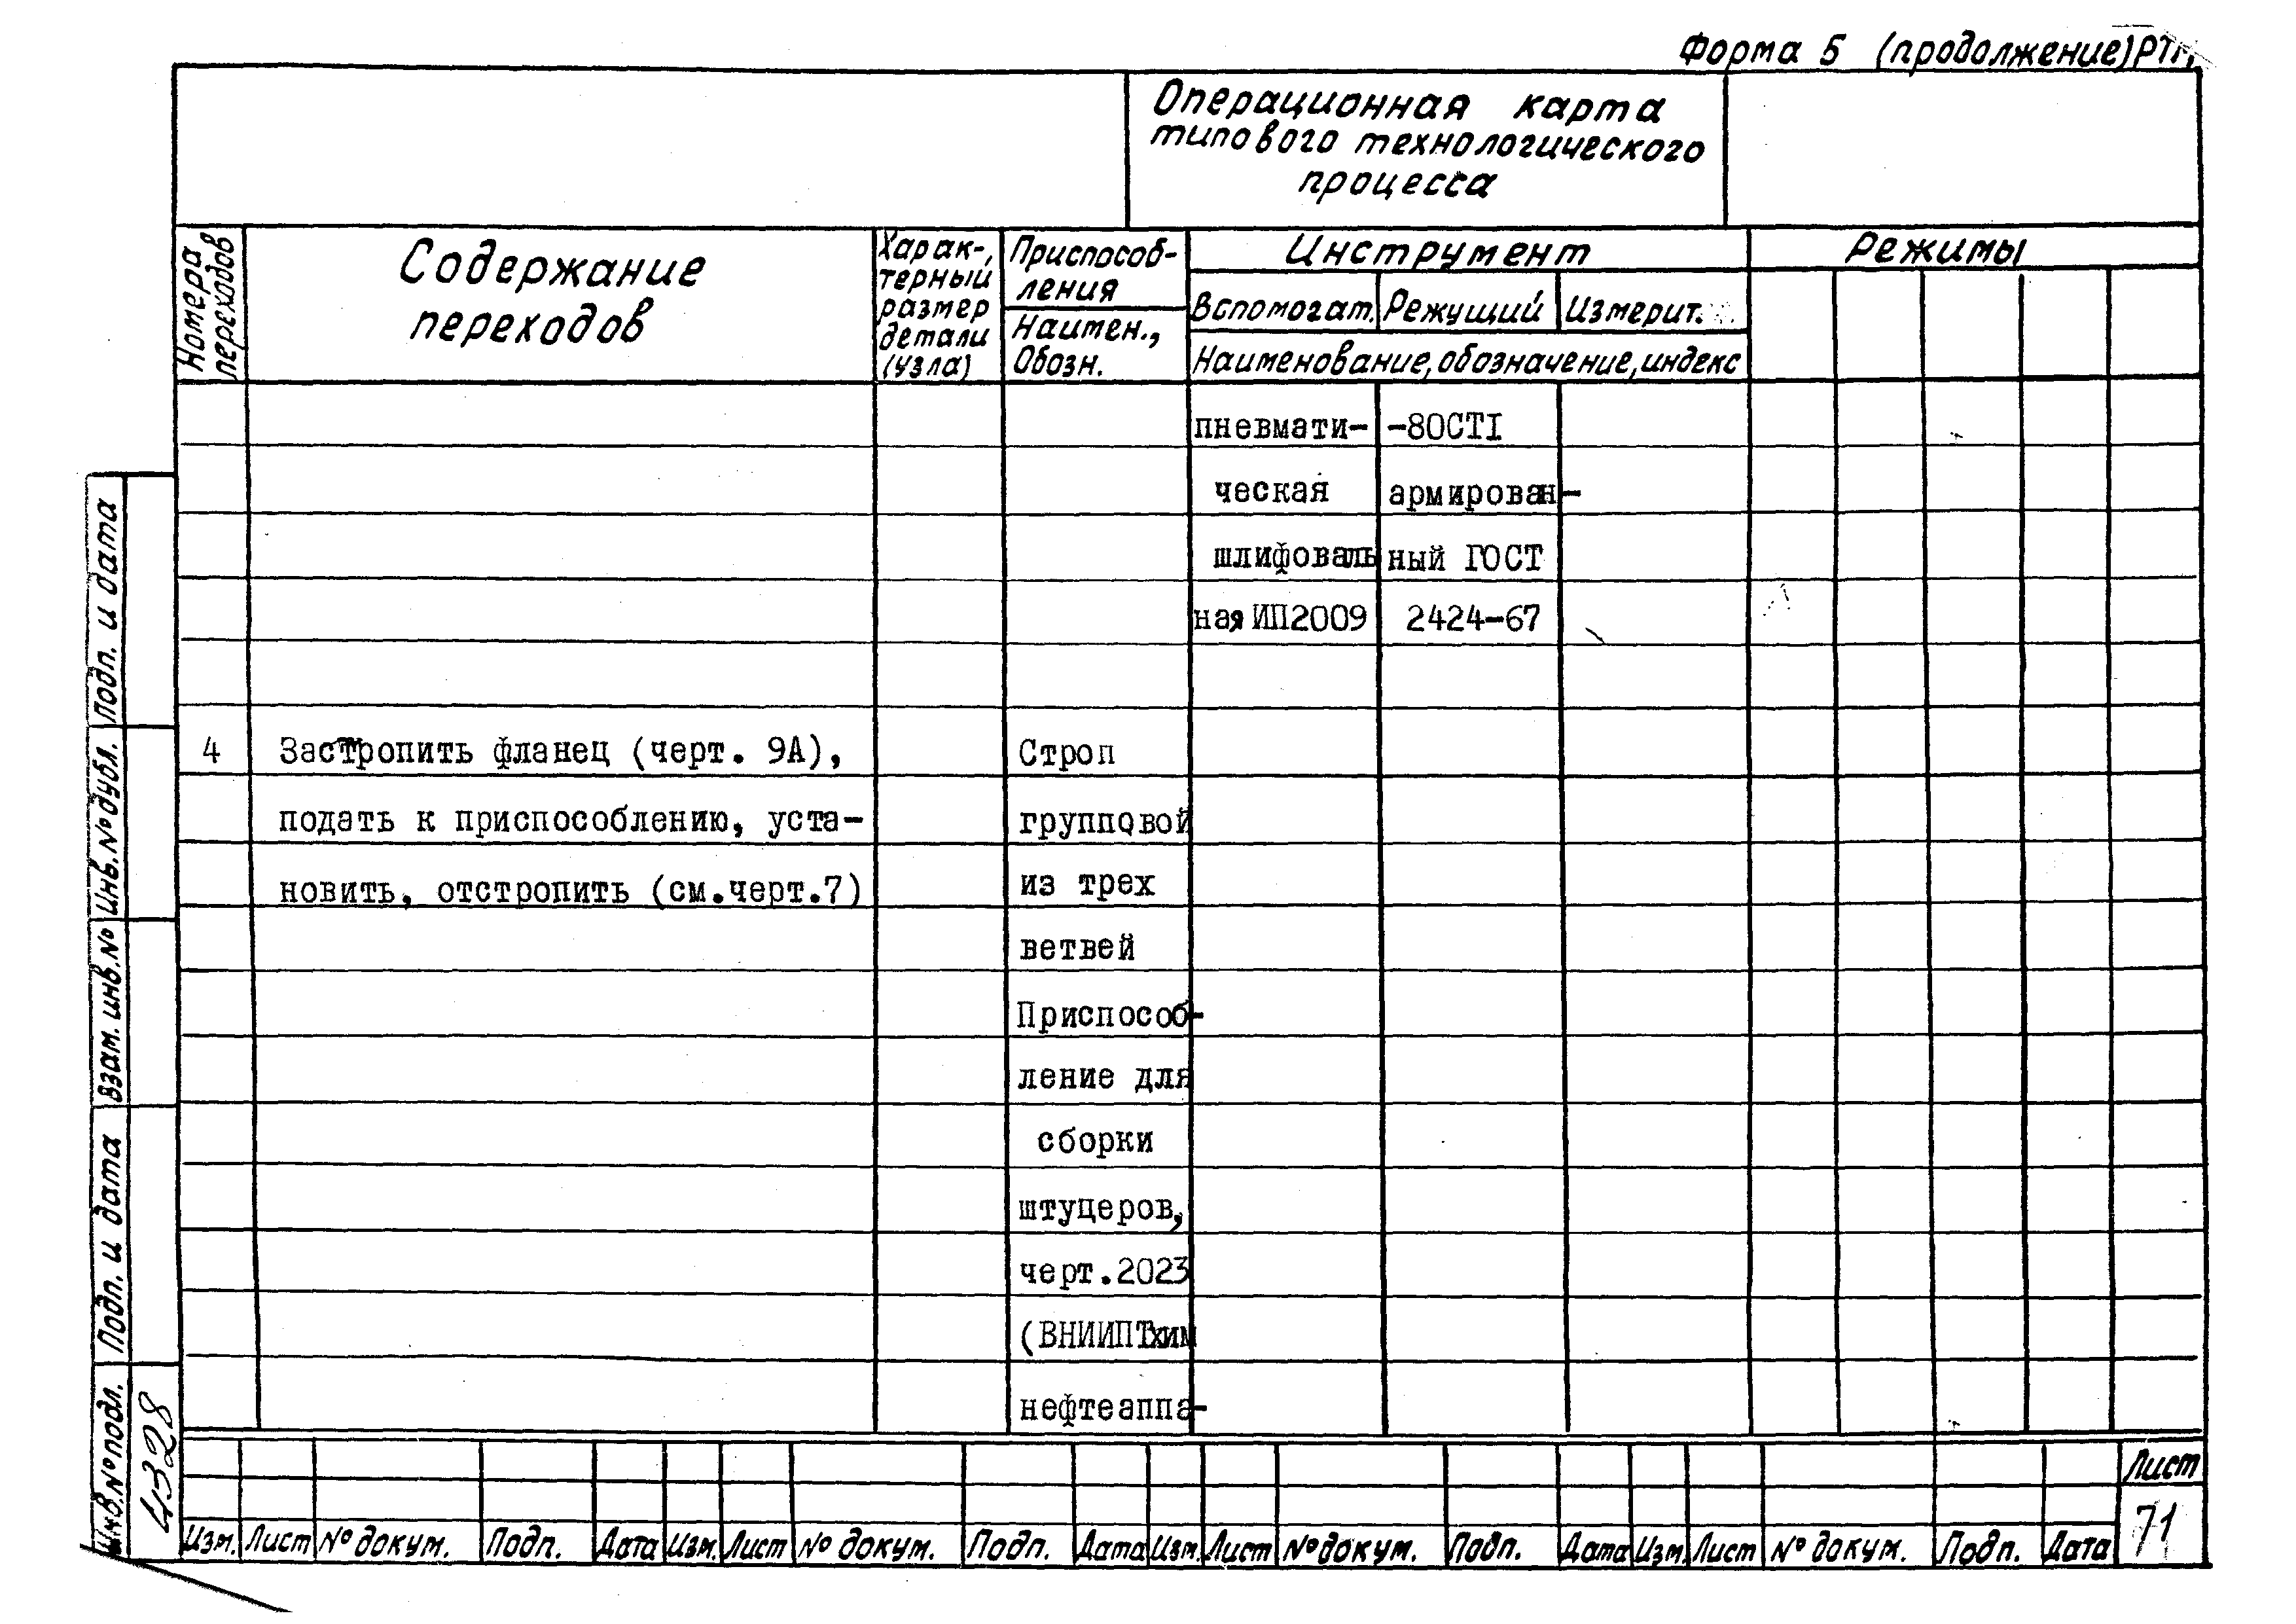 Форма 5 (продолжение)
Операционная карта
типового технологического
процесса
Номера
переходов
Содержание
переходов
Харак-,
терный
размер
детали
(узла)
Приспособ-
ления
Наимен.,
Обозн.
Инструмент
Вспомогат. Режущий Измерит.
Наименование, обозначение, индекс
Режимы
пневмати- -80СТI
ческая армирован-
шлифоваль ный ГОСТ
ная ИП2009 2424-67
4 Застропить фланец (черт. 9А), Строп
подать к приспособлению, уста- групповой
новить, отстропить (см.черт.7) из трех
ветвей
Приспособ-
ление для
сборки
штуцеров,
черт.2023
(ВНИИПТхим
нефтеаппа-
Подп. и дата
Инв. № дубл.
Взам. инв. №
Подп. и дата
Инв. № подл.
4328
Изм. Лист № докум. Подп. Дата Изм. Лист № докум. Подп. Дата Изм. Лист № докум. Подп. Дата Изм. Лист № докум. Подп. Дата
Лист
71